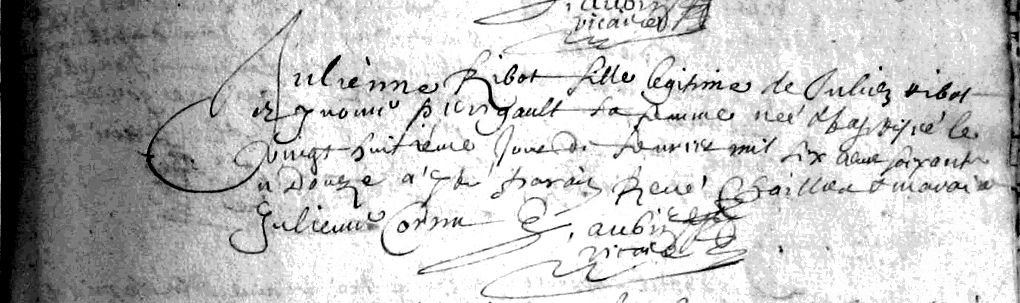 aubin
vicaire
Julienne Ribot fille legitime de Julien ribot
et sa femme neé & baptiseé le
vingt huitieme Jour de feurier mil six cent soixante
& Douze a esté parain René Chaillou & maraine
Julienne Cornu
aubin
vicaire